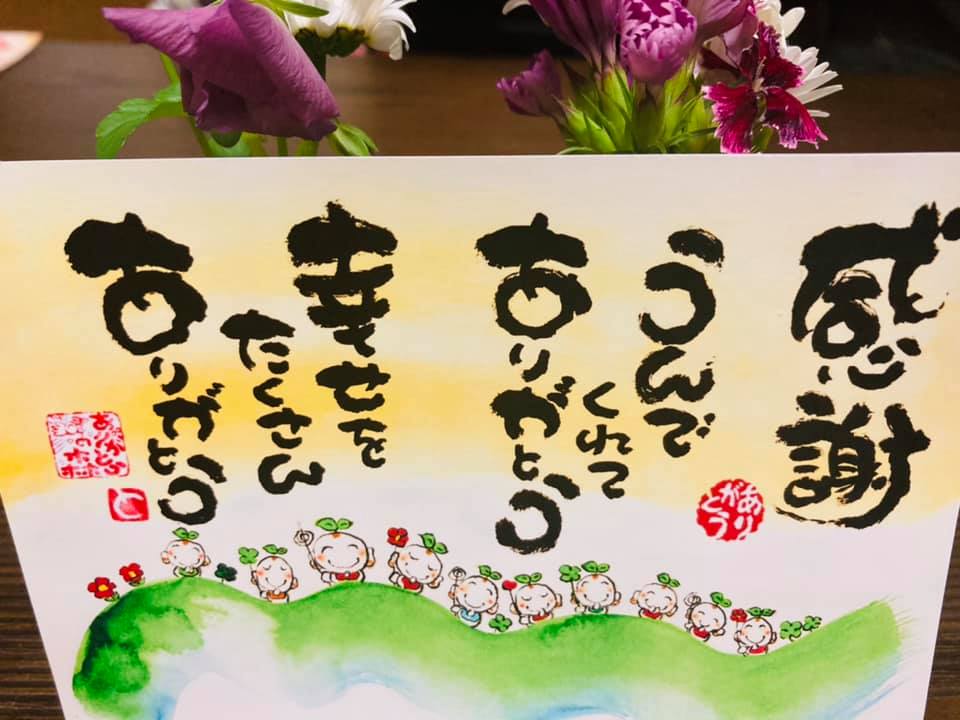 感謝
うんで
くれて
ありがとう
幸せを
たくさん
ありがとう
ありがとう